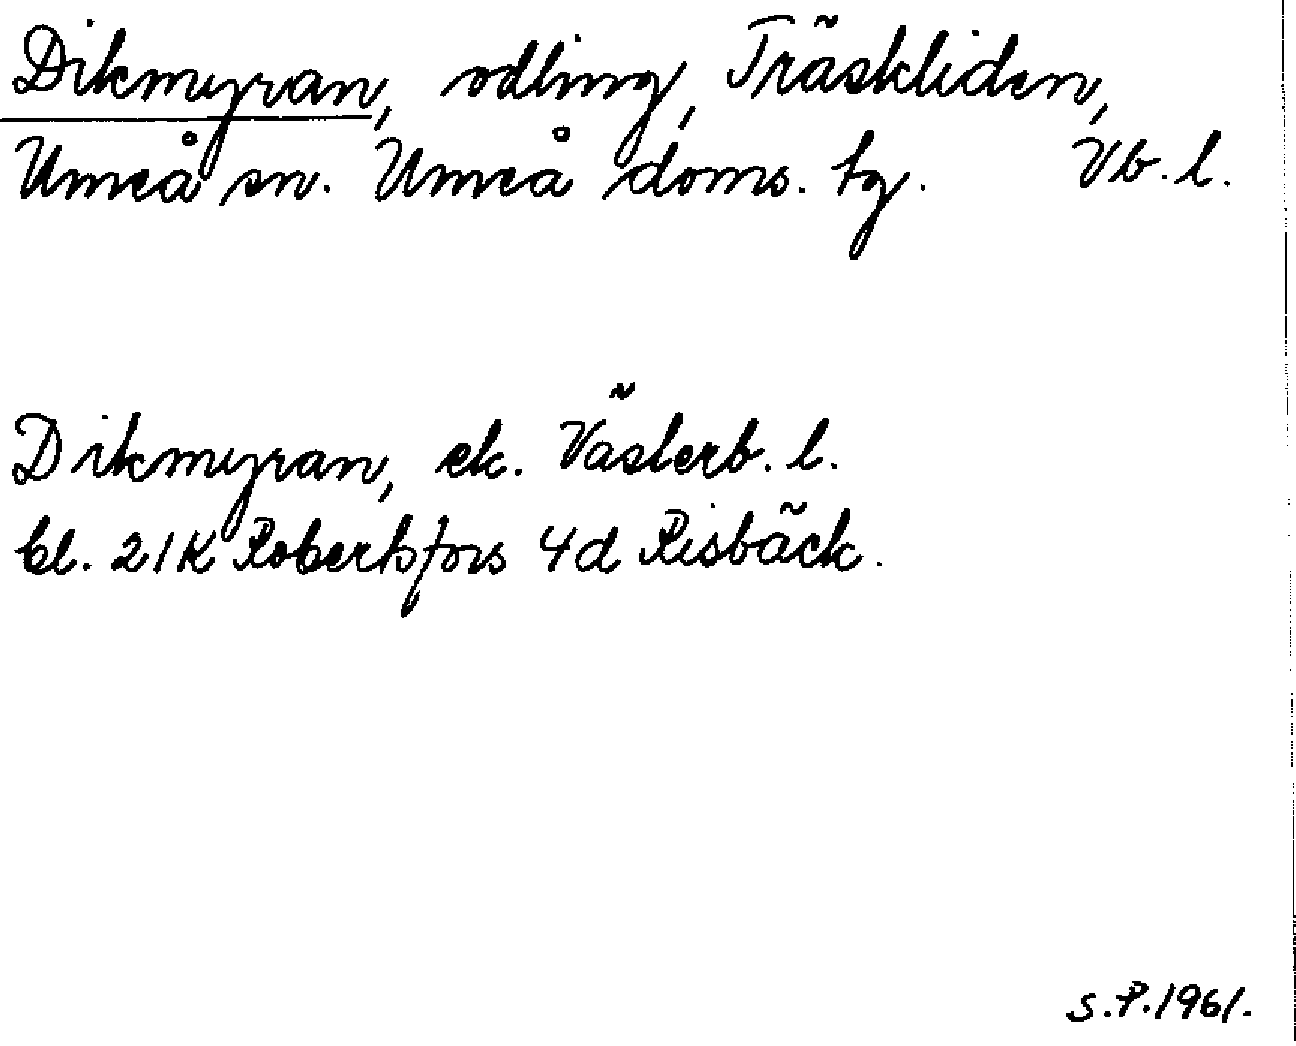 Dikmyran, odling, Träskliden,
Umeå sn. Umeå doms. tg. Vb. l.
Dikmyran, ek. Västerb. l.
bl. 21K Robertsfors 4d Risbäck.
S.P. 1961.